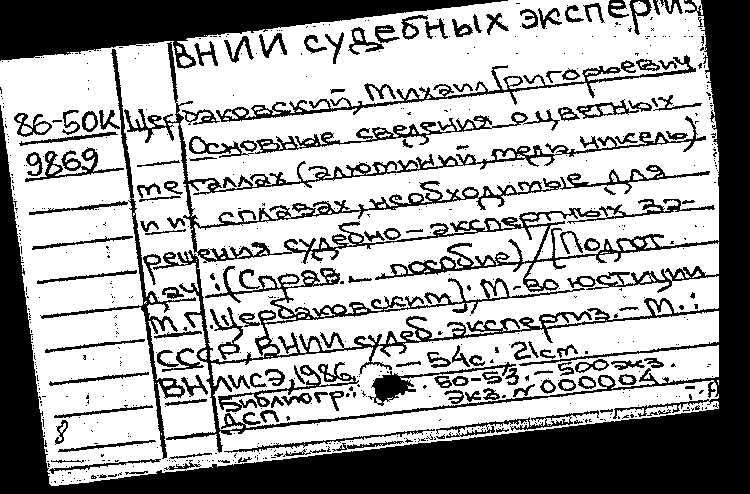 ВНИИ судебных экспертиз
86-50К Щербаковский, Михаил Григорьевич.
9869 Основные сведения о цветных
металлах (алюминий, медь, никель)
и их сплавах, необходимые для
решения судебно-экспертных за-
дач: (Справ. пособие) / [Подгот.
М.Г. Щербаковским]; М-во юстиции
СССР, ВНИИ судеб. экспертиз. - М.:
ВНИИСЭ, 1986. - 54с.; 21см.
Библиогр.: с. 50-53. - 500 экз.
ДСП. Экз. № 000004.
8